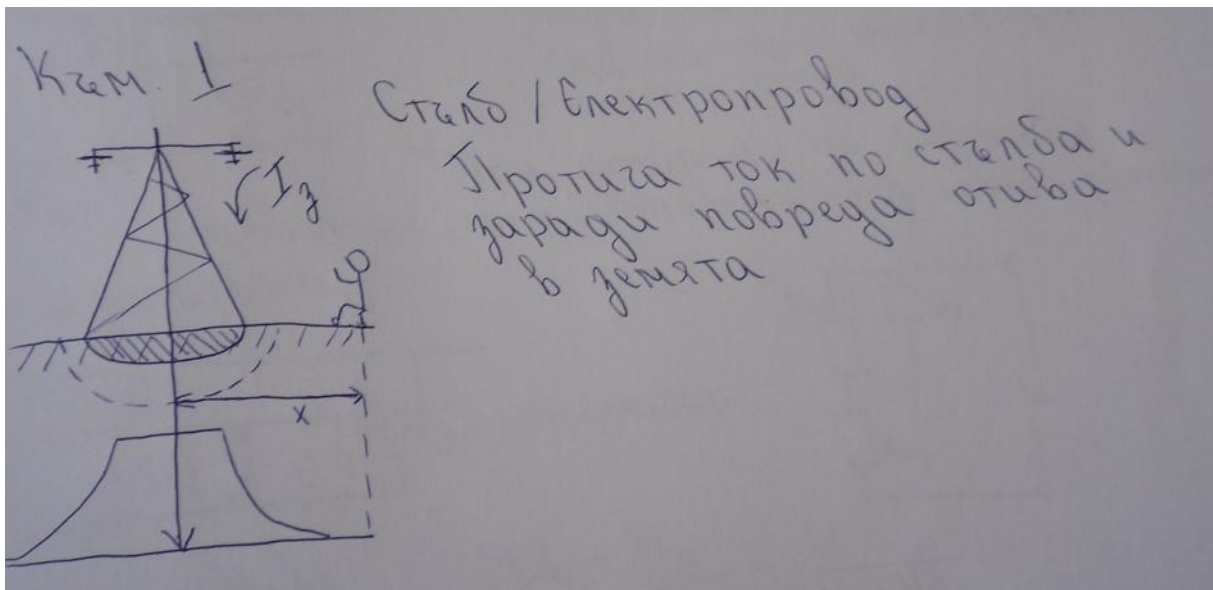 Към. I
Стълб / Електропровод
Протича ток по стълба и
заради повреда отива
в земята
Iз
x